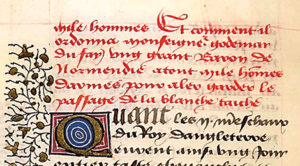 mile hommes Et comment il
ordonna monseigneᷣ godemar
du fay ung grant Baron de
Normendie atout mile hões
darmes pour aler garder le
passage de la blanche tache
Quant les ii mareschaux
du Roy dangleterre
eurent ainsi ung Jour